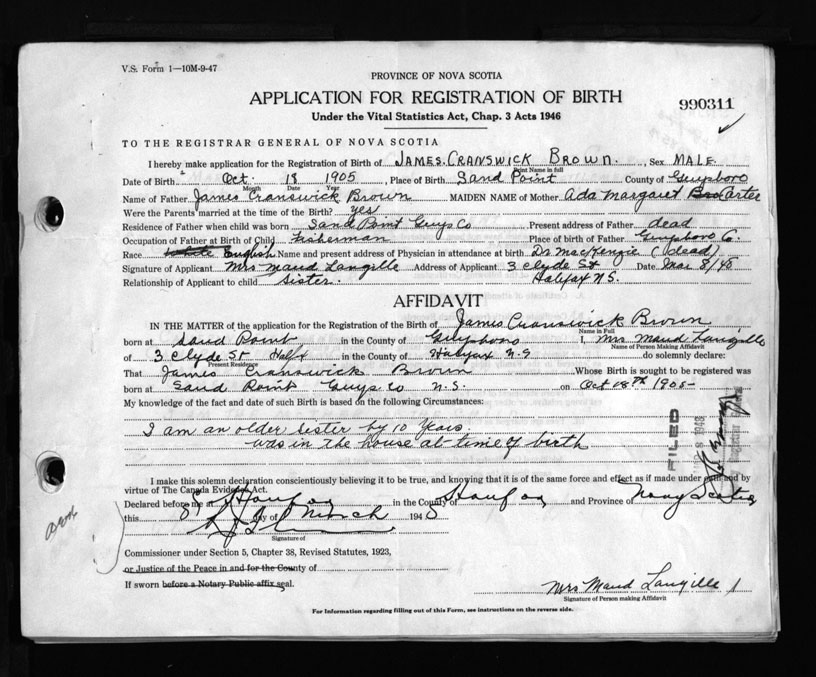 V.S. Form 1—10M-9-47
PROVINCE OF NOVA SCOTIA
APPLICATION FOR REGISTRATION OF BIRTH
990311
Under the Vital Statistics Act, Chap. 3 Acts 1946
TO THE REGISTRAR GENERAL OF NOVA SCOTIA
I hereby make application for the Registration of Birth of JAMES. CRANSWICK BROWN. , Sex MALE.
Print Name in full
Date of Birth Oct. 18 1905 , Place of Birth Sand Point County of Guysboro
Month Date Year
Name of Father James Cranswick Brown MAIDEN NAME of Mother Ada Margaret Bro Carter
Were the Parents married at the time of the Birth? yes
Residence of Father when child was born Sand Point Guys Co Present address of Father dead
Occupation of Father at Birth of Child Fisherman Place of birth of Father Guysboro C.
Race White English Name and present address of Physician in attendance at birth Dr MacKenzie (Dead)
Signature of Applicant Mrs Maud Langille Address of Applicant 3 Clyde St Date Mar 8/48
Relationship of Applicant to child sister. Halifax N.S.
AFFIDAVIT
IN THE MATTER of the application for the Registration of the Birth of James Cranswick Brown
Name in Full
born at Sand Point in the County of Guysboro I, Mrs Maud Langille
Name of Person Making Affidavit
of 3 Clyde St Halfx in the County of Halifax N.S do solemnly declare:
Present Residence
That James Cranswick Brown Whose Birth is sought to be registered was
born at Sand Point Guys Co N.S. on Oct 18th 1905-
My knowledge of the fact and date of such Birth is based on the following Circumstances:
I am an older sister by 10 years.
was in the house at time of birth
FILED
I make this solemn declaration conscientiously believing it to be true, and knowing that it is of the same force and effect as if made under oath and by
virtue of The Canada Evidence Act.
Declared before me at Halifax in the County of Halifax and Province of Nova Scotia
this 8 day of March 1948
Signature of
Commissioner under Section 5, Chapter 38, Revised Statutes, 1923,
or Justice of the Peace in and for the County of
If sworn before a Notary Public affix seal.
Mrs Maud Langille
Signature of Person making Affidavit
For Information regarding filling out of this Form, see instructions on the reverse side.